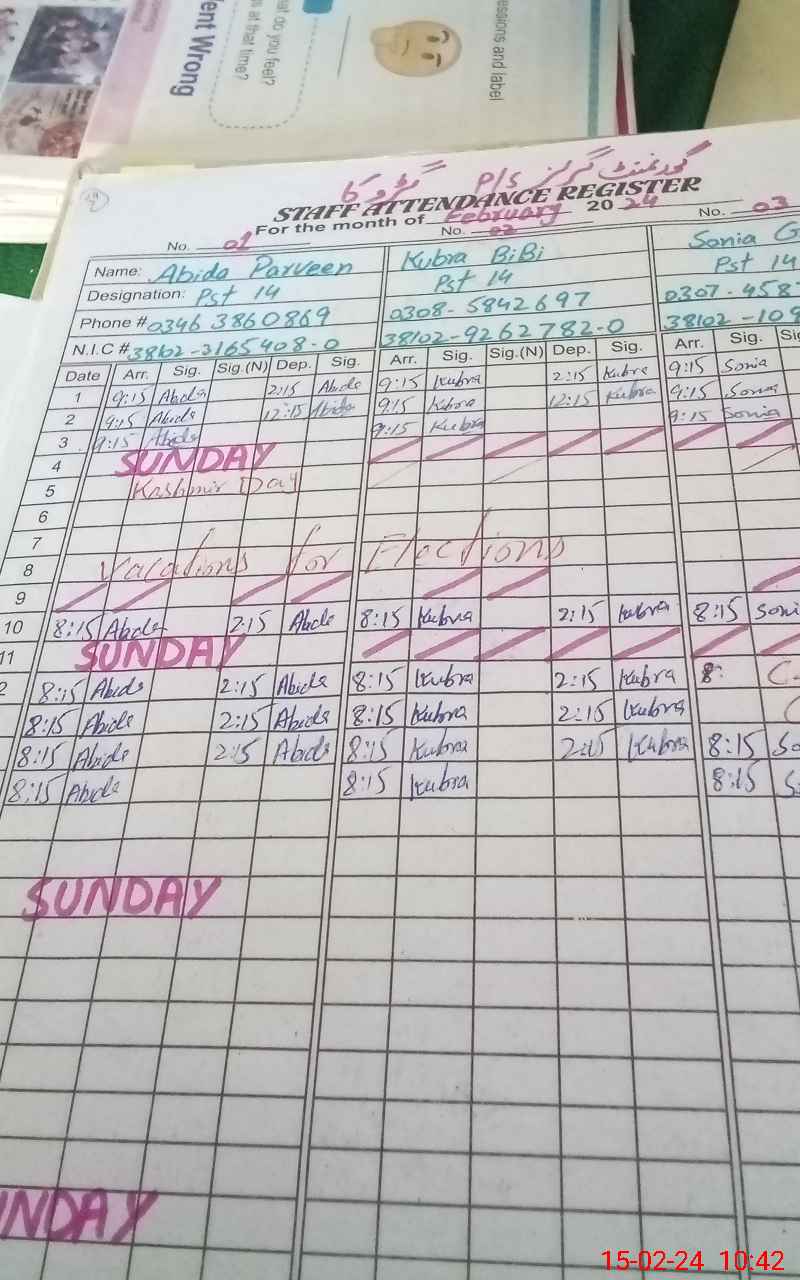 ent Wrong
at do you feel?
at that time?
essions and label
گورنمنٹ گرلز P/S
STAFF ATTENDANCE REGISTER
For the month of February 2024
No. 01 No. 02 No. 03
Name: Abida Parveen Kubra BiBi Sonia G
Designation: Pst 14 Pst 14 Pst 14
Phone # 0346 3860869 0308-5842697 0307-458
N.I.C # 38102-3165408-0 38102-9262782-0 38102-109
Date Arr. Sig. Sig.(N) Dep. Sig. Arr. Sig. Sig.(N) Dep. Sig. Arr. Sig. Sig
1 9:15 Abida 2:15 Abida 9:15 Kubra 2:15 Kubra 9:15 Sonia
2 9:15 Abida 12:15 Abida 9:15 Kubra 12:15 Kubra 9:15 Sonia
3 9:15 Abida 9:15 Kubra 9:15 Sonia
4 SUNDAY
5 Kashmir Day
6
7
8 Vacations for Elections
9
10 8:15 Abida 2:15 Abida 8:15 Kubra 2:15 Kubra 8:15 Soni
11 SUNDAY
2 8:15 Abida 2:15 Abida 8:15 Kubra 2:15 Kubra 8: C
8:15 Abida 2:15 Abida 8:15 Kubra 2:15 Kubra C
8:15 Abida 2:15 Abida 8:15 Kubra 2:15 Kubra 8:15 So
8:15 Abida 8:15 Kubra 8:15 S
SUNDAY
NDAY
15-02-24 10:42